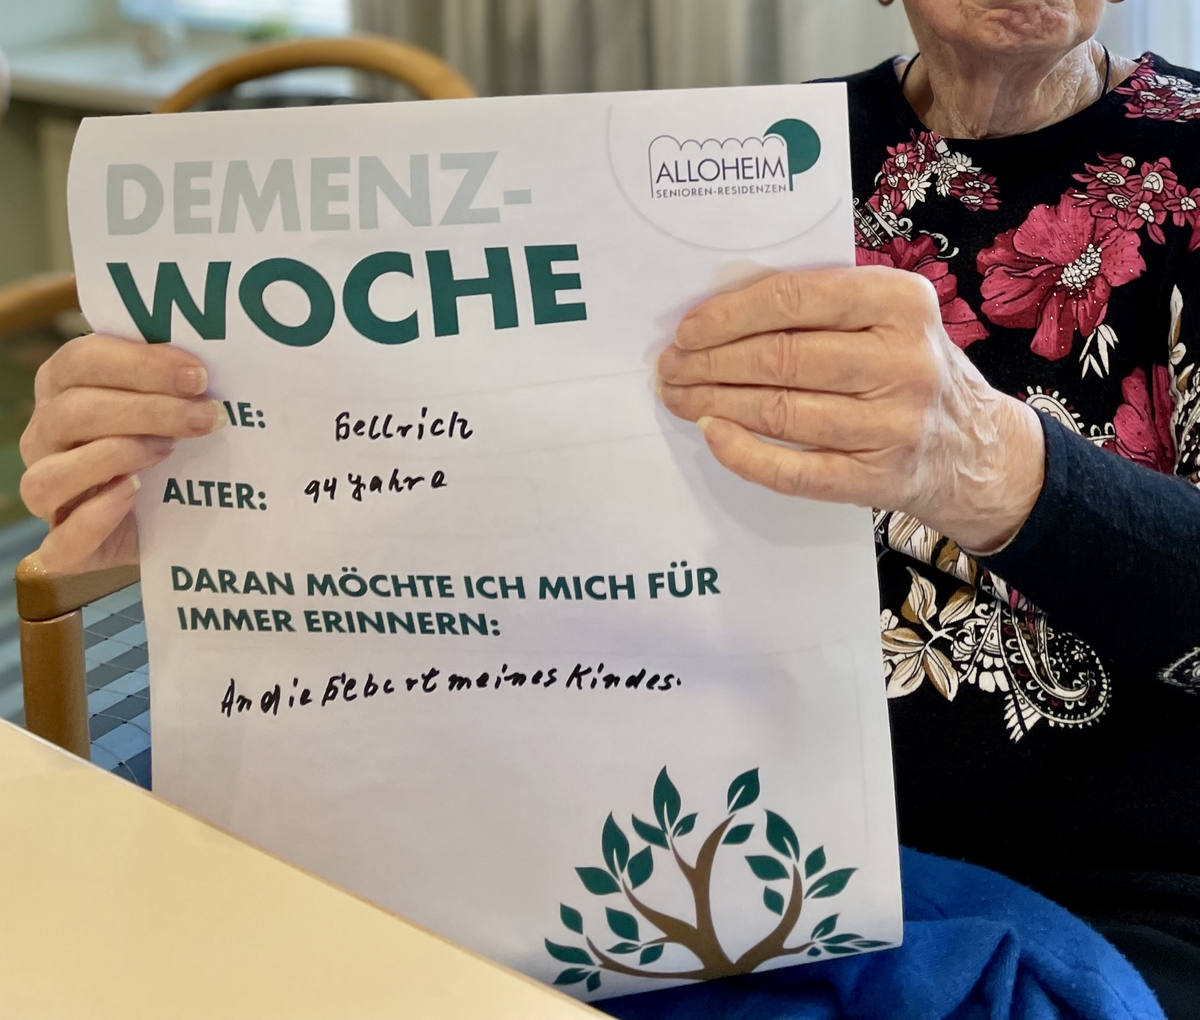 DEMENZ-
WOCHE
ALLOHEIM
SENIOREN-RESIDENZEN
ME: Gellrich
ALTER: 94 Jahre
DARAN MÖCHTE ICH MICH FÜR
IMMER ERINNERN:
An die Gebert meines Kindes.